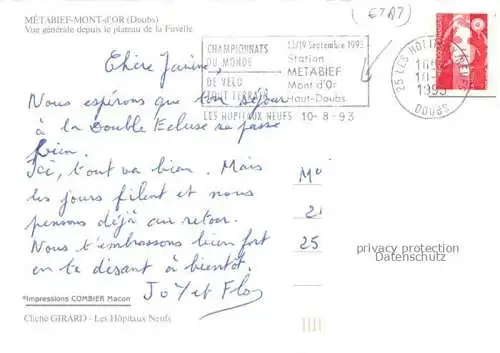 MÉTABIEF-MONT-d'OR (Doubs)
Vue générale depuis le plateau de la Fuvelle
(ETAT)
CHAMPIONNATS
DU MONDE
DE VELO
TOUT TERRAIN
13/19 Septembre 1993
Station
METABIEF
Mont d'Or
Haut-Doubs
LES HOPITAUX NEUFS 10-8-93
25 LES HOPITAUX NEUFS
1993
DOUBS
Chère Janine,
Nous espérons que ton séjour
à la Double Ecluse se passe
bien.
Ici, tout va bien. Mais
les jours filent et nous
pensons déjà au retour.
Nous t'embrassons bien fort
en te disant à bientôt.
JoY et Flo
M
2
25
privacy protection
Datenschutz
Impressions COMBIER Macon
Cliché GIRARD - Les Hôpitaux Neufs